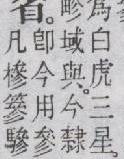 為白虎三星
畛域與。今隸
省。
卽今用參
凡槮篸驂